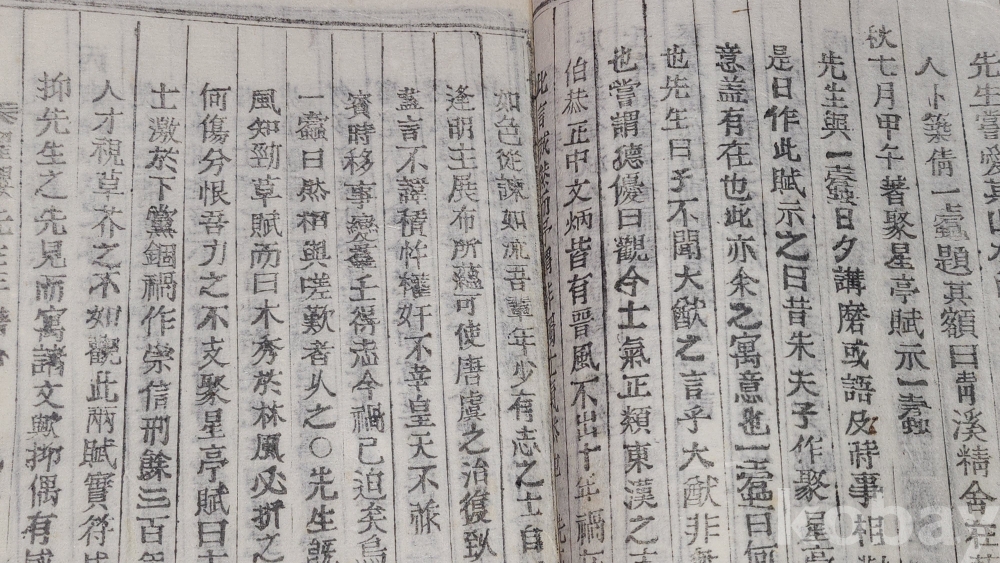 先生嘗愛其山水
人卜築倩一蠹題其額曰靑溪精舍在
秋七月甲午著聚星亭賦示一蠹
先生與一蠹日夕講磨或語及時事相對
是日作此賦示之曰昔朱夫子作聚星亭
意盖有在也此亦余之寓意也一蠹曰何
也先生曰子不聞大猷之言乎大猷非
也嘗謂德優曰觀今士氣正類東漢之
伯恭正中文炳皆有晋風不出十年禍
此言
如色從諫如流吾輩年少有志之士自
逢明主展布所蘊可使唐虞之治復
盡言不諱積忤權奸不幸皇天不祿
賓時移事變羣壬得志今禍已迫矣烏
一蠹曰然相與嗟歎者久之○先生旣
風知勁草賦而曰木秀於林風必折之
何傷分恨吾力之不支聚星亭賦曰
士激於下黨錮禍作崇信刑餘三百
人才視草芥之不如觀此兩賦實符
抑先生之先見而寓諸文歟抑偶有感